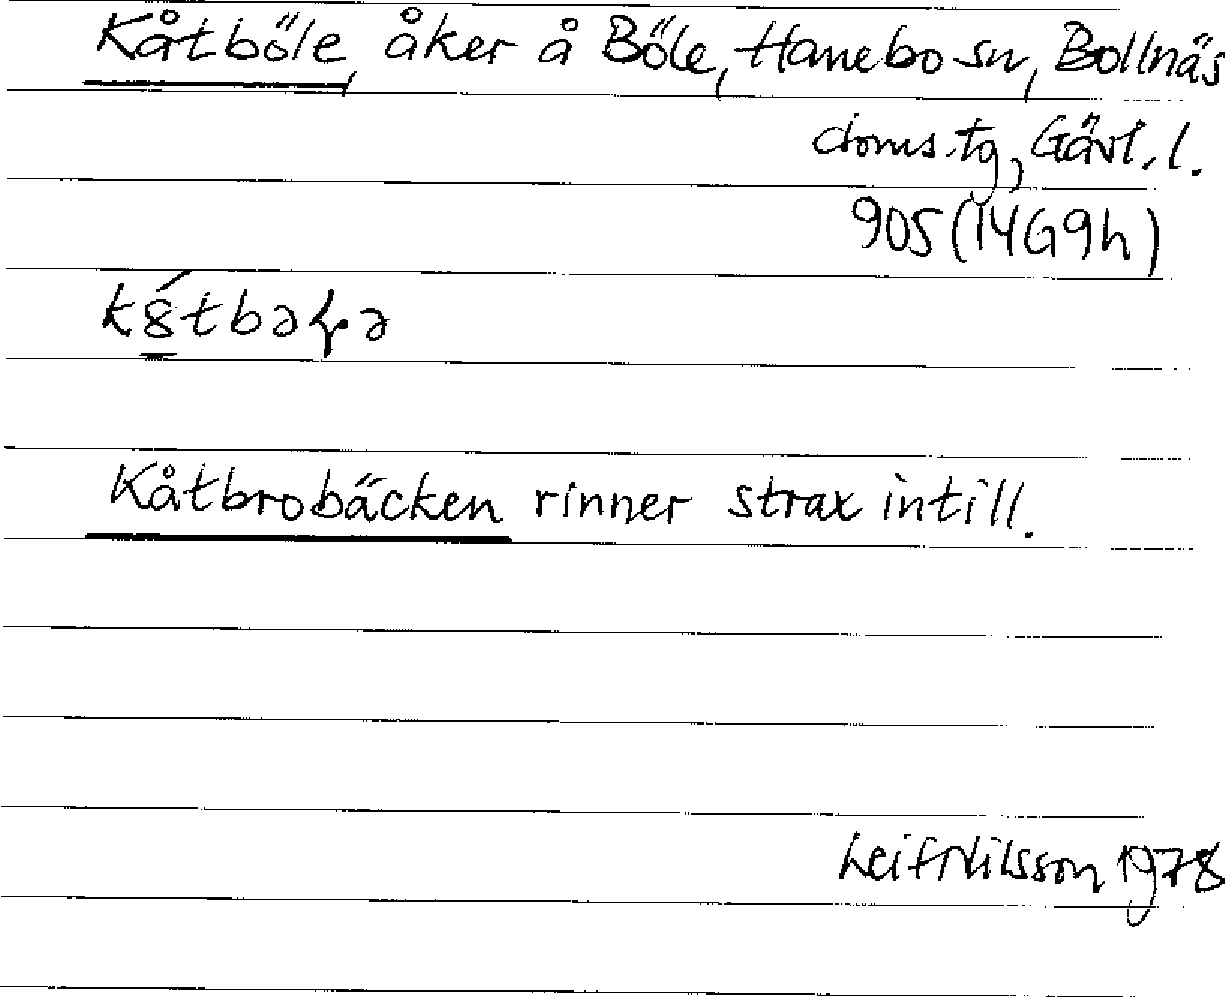 Kåtböle, åker å Böle, Hanebo sn, Bollnäs
doms.tg, Gävl. l.
905 (14G9h)
Kåtbrobäcken rinner strax intill.
Leif Nilsson 1978